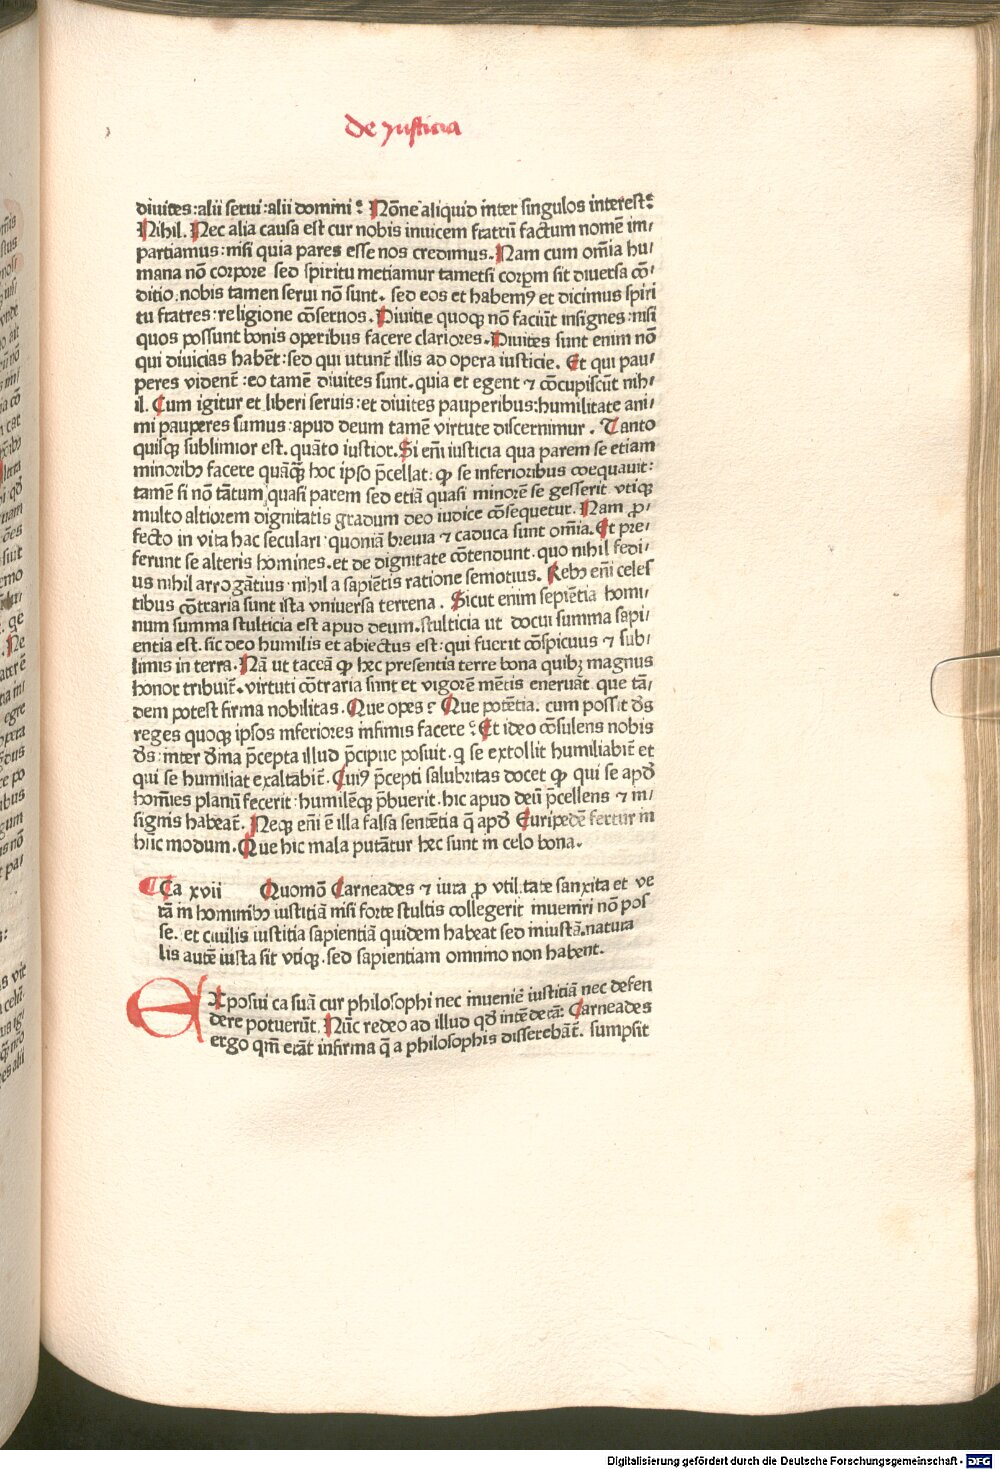 de justicia
diuites:alii serui:alii domini? Nõne aliquid inter singulos interest?
Nihil. Nec alia causa est cur nobis inuicem fratrũ factum nomẽ im-
partiamus:nisi quia pares esse nos credimus. Nam cum om̃ia hu
mana nõ corpore sed spiritu metiamur tametsi corpꝝm sit diuersa cõ-
ditio.nobis tamen serui nõ sunt. sed eos et habemꝰ et dicimus spiri
tu fratres:religione cõseruos. Diuitie quoqꝫ nõ faciũt insignes:nisi
quos possunt bonis operibus facere clariores. Diuites sunt enim nõ
qui diuicias habẽt:sed qui utunt̃ illis ad opera iusticie. Et qui pau-
peres vident̃:eo tamẽ diuites sunt.quia et egent ⁊ cõcupiscũt nih-
il. Cum igitur et liberi seruis:et diuites pauperibus:humilitate ani-
mi pauperes sumus:apud deum tamẽ virtute discernimur. Tanto
quisqꝫ sublimior est.quãto iustior. Si em̃ iusticia qua parem se etiam
minoribꝰ facere quãqꝫ̃ hoc ipso p̃cellat: ꝙ se inferioribus coequauit:
tamẽ si nõ tãtum quasi parem sed etiã quasi minorẽ se gesserit vtiqꝫ
multo altiorem dignitatis gradum deo iudice cõsequetur. Nam ꝓ-
fecto in vita hac seculari quoniã breuia ⁊ caduca sunt om̃ia. Et pre-
ferunt se alteris homines.et de dignitate cõtendunt.quo nihil fedi-
us nihil arrogãtius nihil a sapiẽtis ratione semotius. Rebꝰ em̃ celes
tibus cõtraria sunt ista vniuersa terrena. Sicut enim sepiẽtia homi-
num summa stulticia est apud deum.stulticia ut docui summa sapi-
entia est.sic deo humilis et abiectus est:qui fuerit cõspicuus ⁊ sub-
limis in terra. Nã ut taceã ꝙ hec presentia terre bona quibꝫ magnus
honor tribuit̃.virtuti cõtraria sunt et vigorẽ mẽtis eneruãt que tã-
dem potest firma nobilitas. Que opes? Que potẽtia. cum possit d̃s
reges quoqꝫ ipsos inferiores infimis facere? Et ideo cõsulens nobis
d̃s:inter d̃ina p̃cepta illud p̃cipue posuit.q̃ se extollit humiliabit̃ et
qui se humiliat exaltabit̃. Cuiꝰ p̃cepti salubritas docet ꝙ qui se apd̃
hom̃ies planũ fecerit humilẽqꝫ p̃buerit.hic apud deũ p̃cellens ⁊ in-
signis habeat̃. Neqꝫ em̃ ẽ illa falsa sentẽtia q̃ apd̃ Euripedẽ fertur in
hũc modum. Que hic mala putãtur hec sunt in celo bona.
Ca xvii Quomõ Carneades ⁊ iura ꝓ vtilitate sanxita et ve
rã in hominibꝰ iustitiã nisi forte stultis collegerit inueniri nõ pos
se. et ciuilis iustitia sapientiã quidem habeat sed iniustã.natura
lis autẽ iusta sit vtiqꝫ.sed sapientiam omnino non habent.
EXposui causã cur philosophi nec inuenirẽ iustitiã nec defen
dere potuerũt. Nũc redeo ad illud qd̃ intẽderã: Carneades
ergo qm̃ erãt infirma q̃ a philosophis disserebãt̃. sumpsit
Digitalisierung gefördert durch die Deutsche Forschungsgemeinschaft - DFG